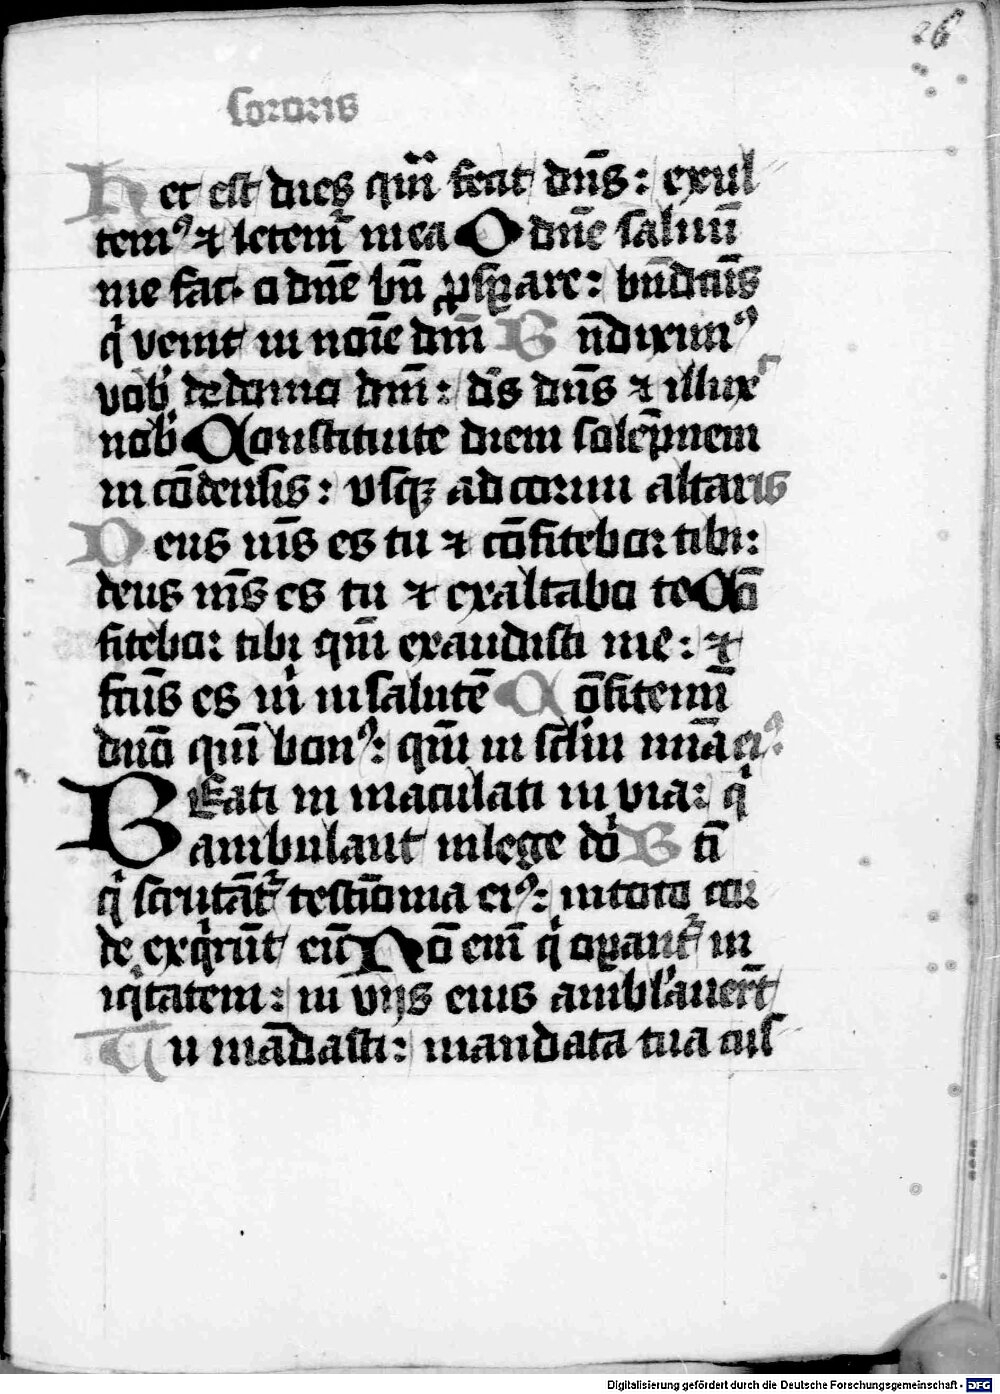 26
sororis
Hec est dies quā fecit dn̄s: exul
temꝰ ⁊ letem̄ in ea O dn̄e saluū
me fac· o dn̄e bn̄ ꝓsꝑare: bn̄dc̄us
q̇ venit in noīe dn̄i B n̄diximꝰ
vob̓ de domo dn̄i: dꝰs dn̄s ⁊ illux
nob̓ Constituite diem solēpnem
in cōdensis: vsqꝫ ad cornu altaris
Deus m̄s es tu ⁊ cōfitebor tibi:
deus m̄s es tu ⁊ exaltabo te Cō
fitebor tibi qm̄ exaudisti me: ⁊
fcūs es m̓ in salutē C ōfitemī
dn̄o qm̄ bonꝰ: qm̄ in sclm̄ mīa eiꝰ:
BEati in maculati in via: q̇
ambulant in lege dō B ti
q̇ scrutāt᷑ testīonia eiꝰ: in toto cor
de exq̇rūt eū Nō em̄ q̇ oꝑant᷑ in
iq̇tatem: in vijs eius ambl̓auer̄t
Tu mādasti: mandata tua cus
Digitalisierung gefördert durch die Deutsche Forschungsgemeinschaft - DFG